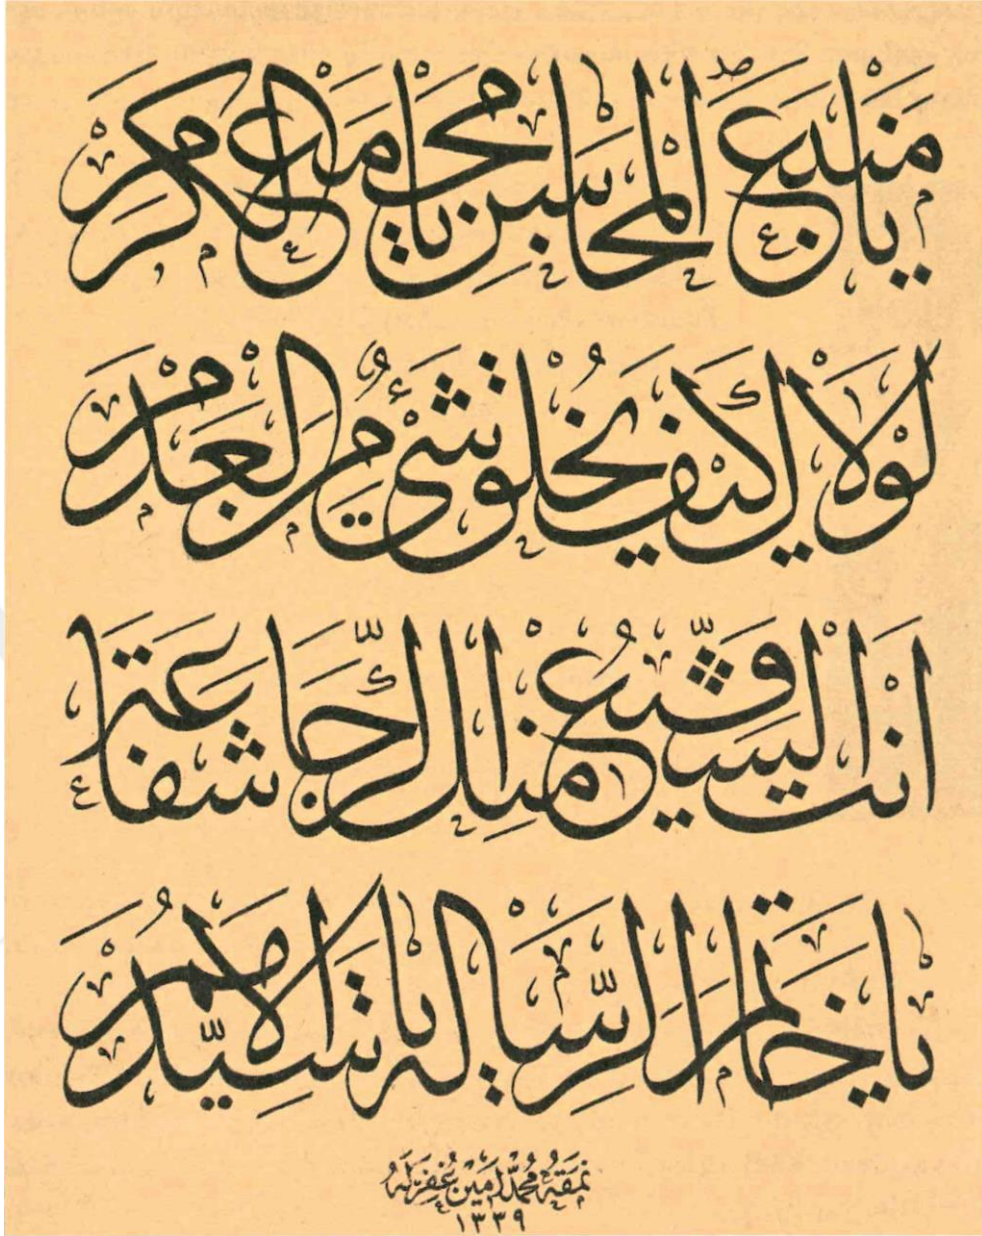 يا منبع المحاسن يا مجمع الكرم
لولاك كيف يخلق شيء من العدم
انت الشفيع منا لك الرجا شفاعة
يا خاتم الرسالة يا سيد الامم
نمقه محمد امين غفر له
١٣٣٩